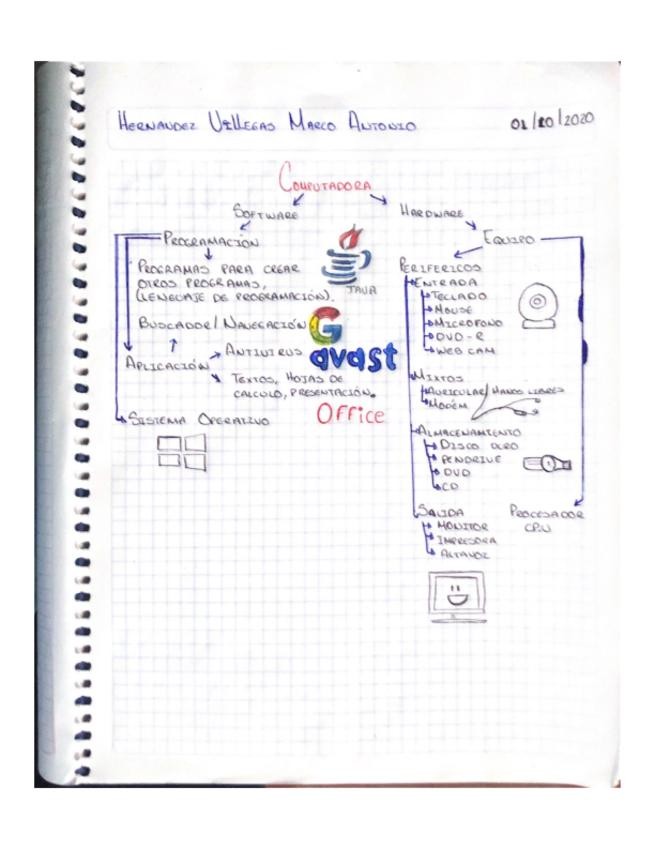 HERNANDEZ VILLEGAS MARCO ANTONIO
01/10/2020
COMPUTADORA
SOFTWARE
HARDWARE
PROGRAMACIÓN
PROGRAMAS PARA CREAR
OTROS PROGRAMAS,
(LENGUAJE DE PROGRAMACIÓN).
JAVA
BUSCADOR/NAVEGACIÓN
G
APLICACIÓN
ANTIVIRUS
avast
TEXTOS, HOJAS DE
CALCULO, PRESENTACIÓN.
OFFice
SISTEMA OPERATIVO
EQUIPO
PERIFERICOS
ENTRADA
TECLADO
MOUSE
MICROFONO
DVD-R
WEB CAM
MIXTOS
AURICULAR/MANOS LIBRES
MODÉM
ALMACENAMIENTO
DISCO DURO
PENDRIVE
DVD
CD
SALIDA
MONITOR
IMPRESORA
ALTAVOZ
PROCESADOR
CPU